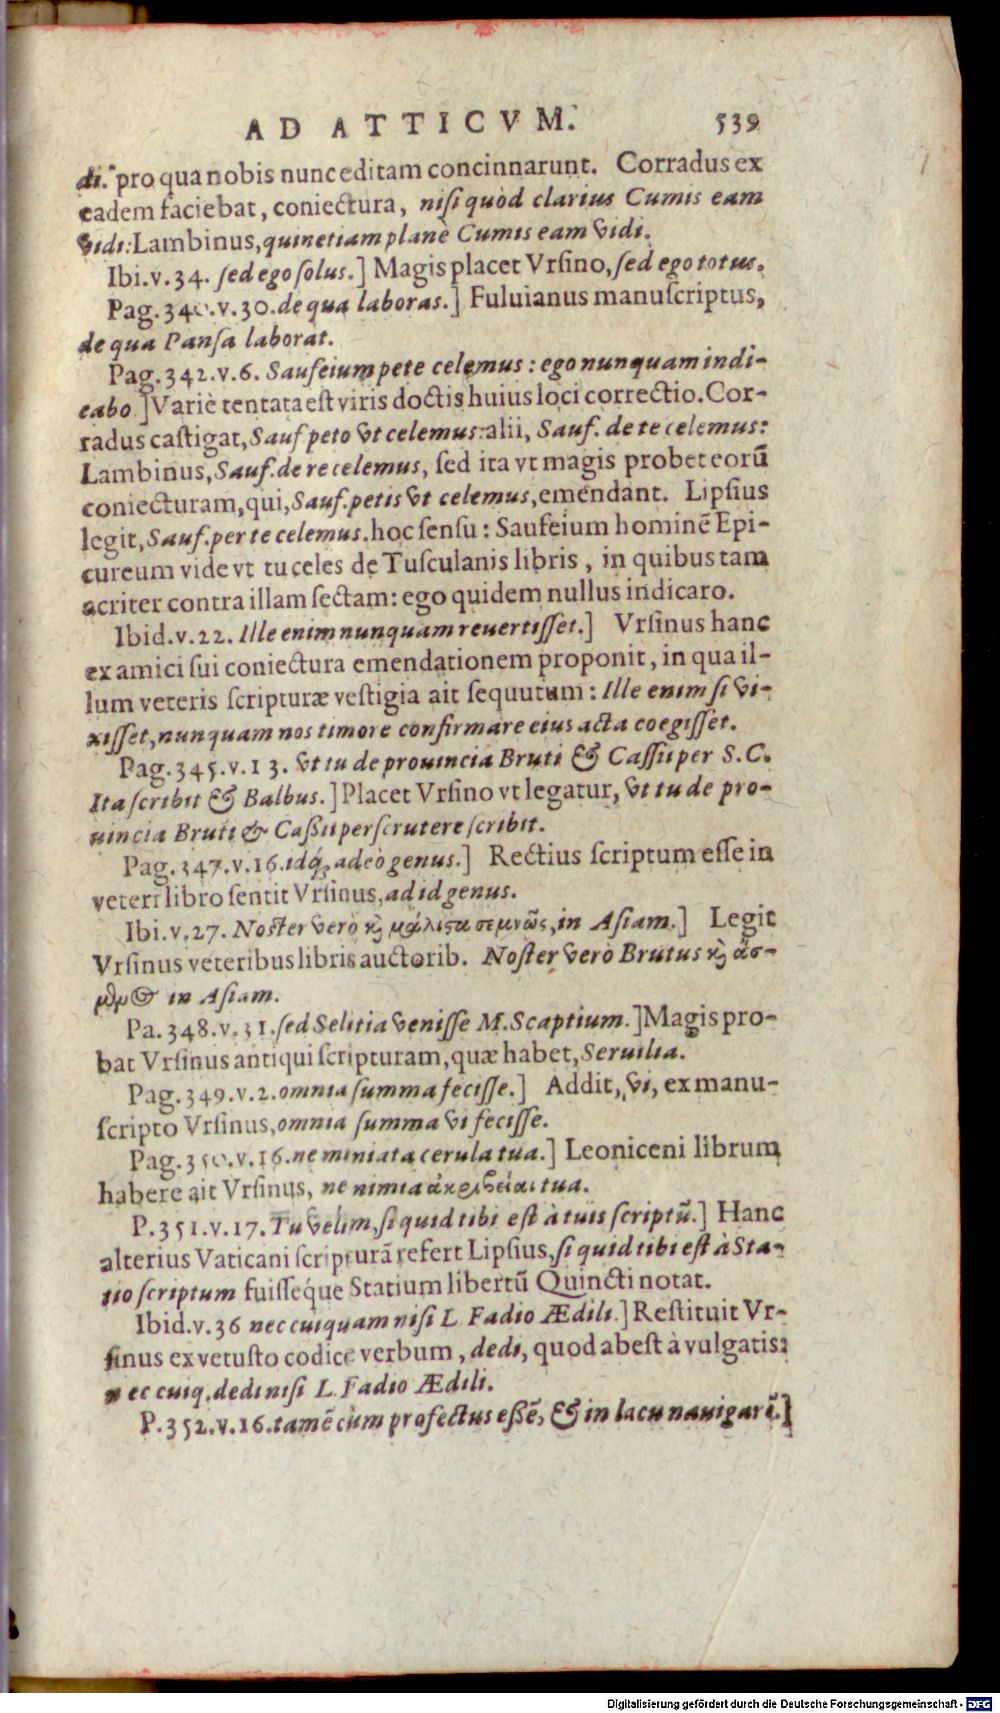 AD ATTICVM. 539
di. pro qua nobis nunc editam concinnarunt. Corradus ex
eadem faciebat, coniectura, nisi quòd clarius Cumis eam
vidi: Lambinus, quinetiam planè Cumis eam vidi.
Ibi. v. 34. sed ego solus.] Magis placet Vrsino, sed ego totus.
Pag. 340. v. 30. de qua laboras.] Fuluianus manuscriptus,
de qua Pansa laborat.
Pag. 342. v. 6. Saufeium pete celemus: ego nunquam indi-
eabo.] Variè tentata est viris doctis huius loci correctio. Cor-
radus castigat, Sauf peto vt celemus: alii, Sauf. de te celemus:
Lambinus, Sauf. de re celemus, sed ita vt magis probet eorū
coniecturam, qui, Sauf. petis vt celemus, emendant. Lipsius
legit, Sauf. per te celemus. hoc sensu: Saufeium hominē Epi-
cureum vide vt tu celes de Tusculanis libris, in quibus tam
acriter contra illam sectam: ego quidem nullus indicaro.
Ibid. v. 22. Ille enim nunquam reuertisset.] Vrsinus hanc
ex amici sui coniectura emendationem proponit, in qua il-
lum veteris scripturæ vestigia ait sequutum: Ille enim si vi-
xisset, nunquam nos timore confirmare eius acta coegisset.
Pag. 345. v. 13. vt tu de prouincia Bruti & Cassii per S. C.
Ita scribit & Balbus.] Placet Vrsino vt legatur, vt tu de pro-
uincia Bruti & Cassii perscrutere scribit.
Pag. 347. v. 16. idq́, adeò genus.] Rectius scriptum esse in
veteri libro sentit Vrsinus, ad id genus.
Ibi. v. 27. Noster verò ϗ̀ μάλιϛα σεμνῶς, in Asiam.] Legit
Vrsinus veteribus libris auctorib. Noster verò Brutus ϗ̀ ἄσ-
in Asiam.
Pa. 348. v. 31. sed Selitia venisse M. Scaptium.] Magis pro-
bat Vrsinus antiqui scripturam, quæ habet, Seruilia.
Pag. 349. v. 2. omnia summa fecisse.] Addit, vi, ex manu-
scripto Vrsinus, omnia summa vi fecisse.
Pag. 350. v. 16. ne miniata cerula tua.] Leoniceni librum
habere ait Vrsinus, ne nimia ἀκριβείαι tua.
P. 351. v. 17. Tu velim, si quid tibi est à tuis scriptū.] Hanc
alterius Vaticani scripturā refert Lipsius, si quid tibi est à Sta-
tio scriptum fuisséque Statium libertū Quincti notat.
Ibid. v. 36 nec cuiquam nisi L Fadio Ædili.] Restituit Vr-
sinus ex vetusto codice verbum, dedi, quod abest à vulgatis:
nec cuiq. dedi nisi L. Fadio Ædili.
P. 352. v. 16. tamē cùm profectus essē, & in lacu nauigarē.]
Digitalisierung gefördert durch die Deutsche Forschungsgemeinschaft - DFG